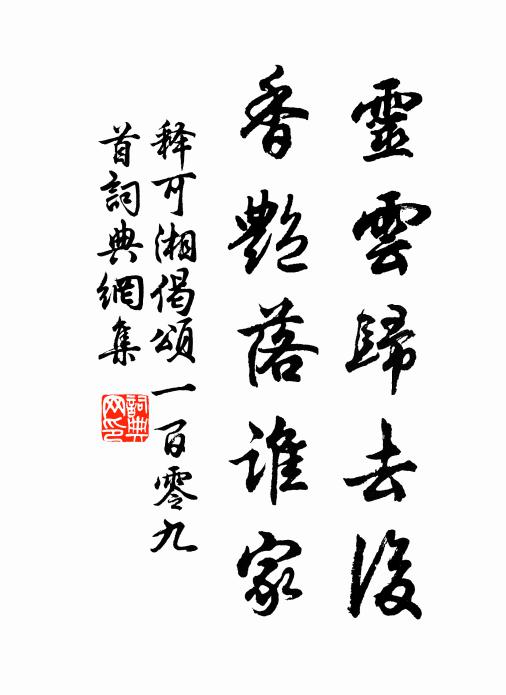 靈雲歸去後
香艷落誰家
释可湘偈頌一百零九
首詞典網集
詞典网印